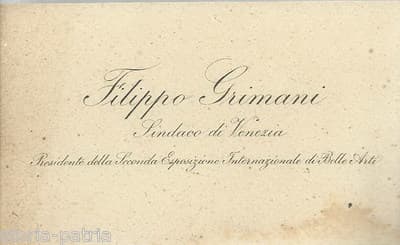 Filippo Grimani
Sindaco di Venezia
Presidente della Seconda Esposizione Internazionale di Belle Arti
gloria-patria